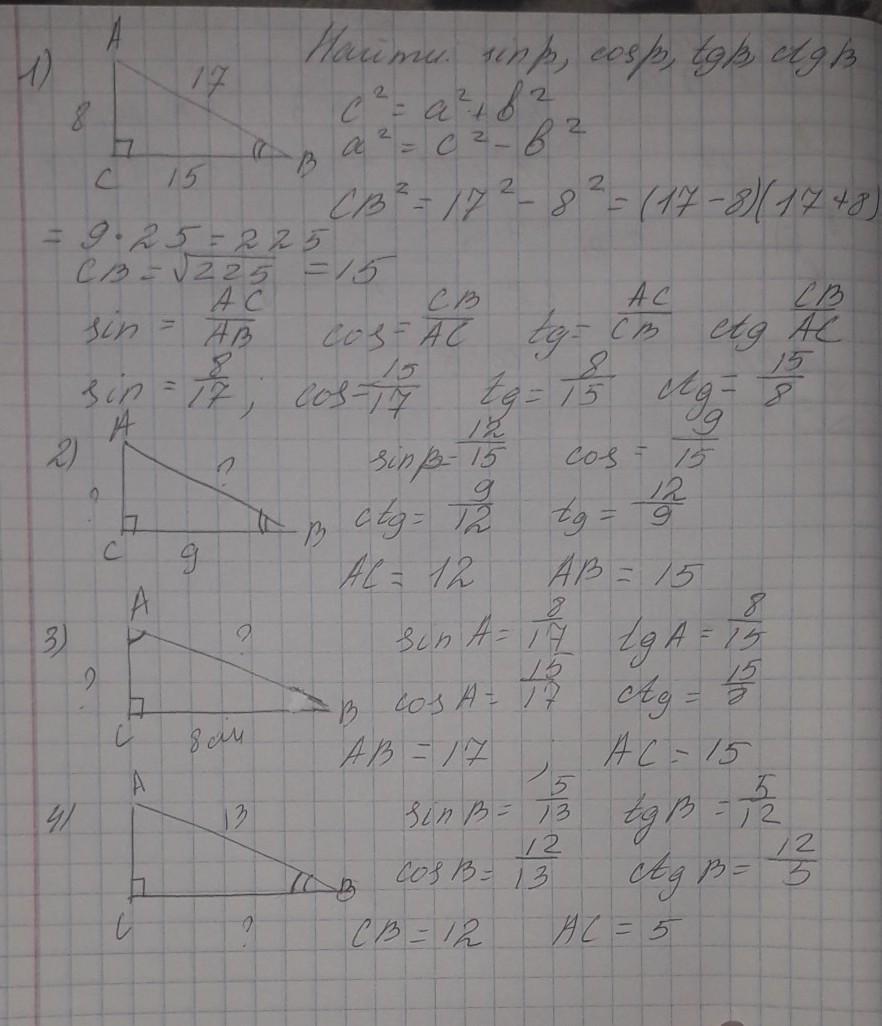 Найти sinβ, cosβ, tgβ, ctgβ
1) A 17 8 C 15 B
c² = a² + b²
a² = c² - b²
CB² = 17² - 8² = (17-8)(17+8)
= 9·25 = 225
CB = √225 = 15
sin = AC/AB cos = CB/AC tg = AC/CB ctg CB/AC
sin = 8/17; cos = 15/17 tg = 8/15 ctg = 15/8
2) A ? ? C 9 B
sinβ = 12/15 cos = 9/15
ctg = 9/12 tg = 12/9
AC = 12 AB = 15
3) A ? ? C 8см B
sin A = 8/17 tg A = 8/15
cos A = 15/17 ctg = 15/8
AB = 17 ; AC = 15
4) A 13 C ? B
sin B = 5/13 tg B = 5/12
cos B = 12/13 ctg B = 12/5
CB = 12 AC = 5